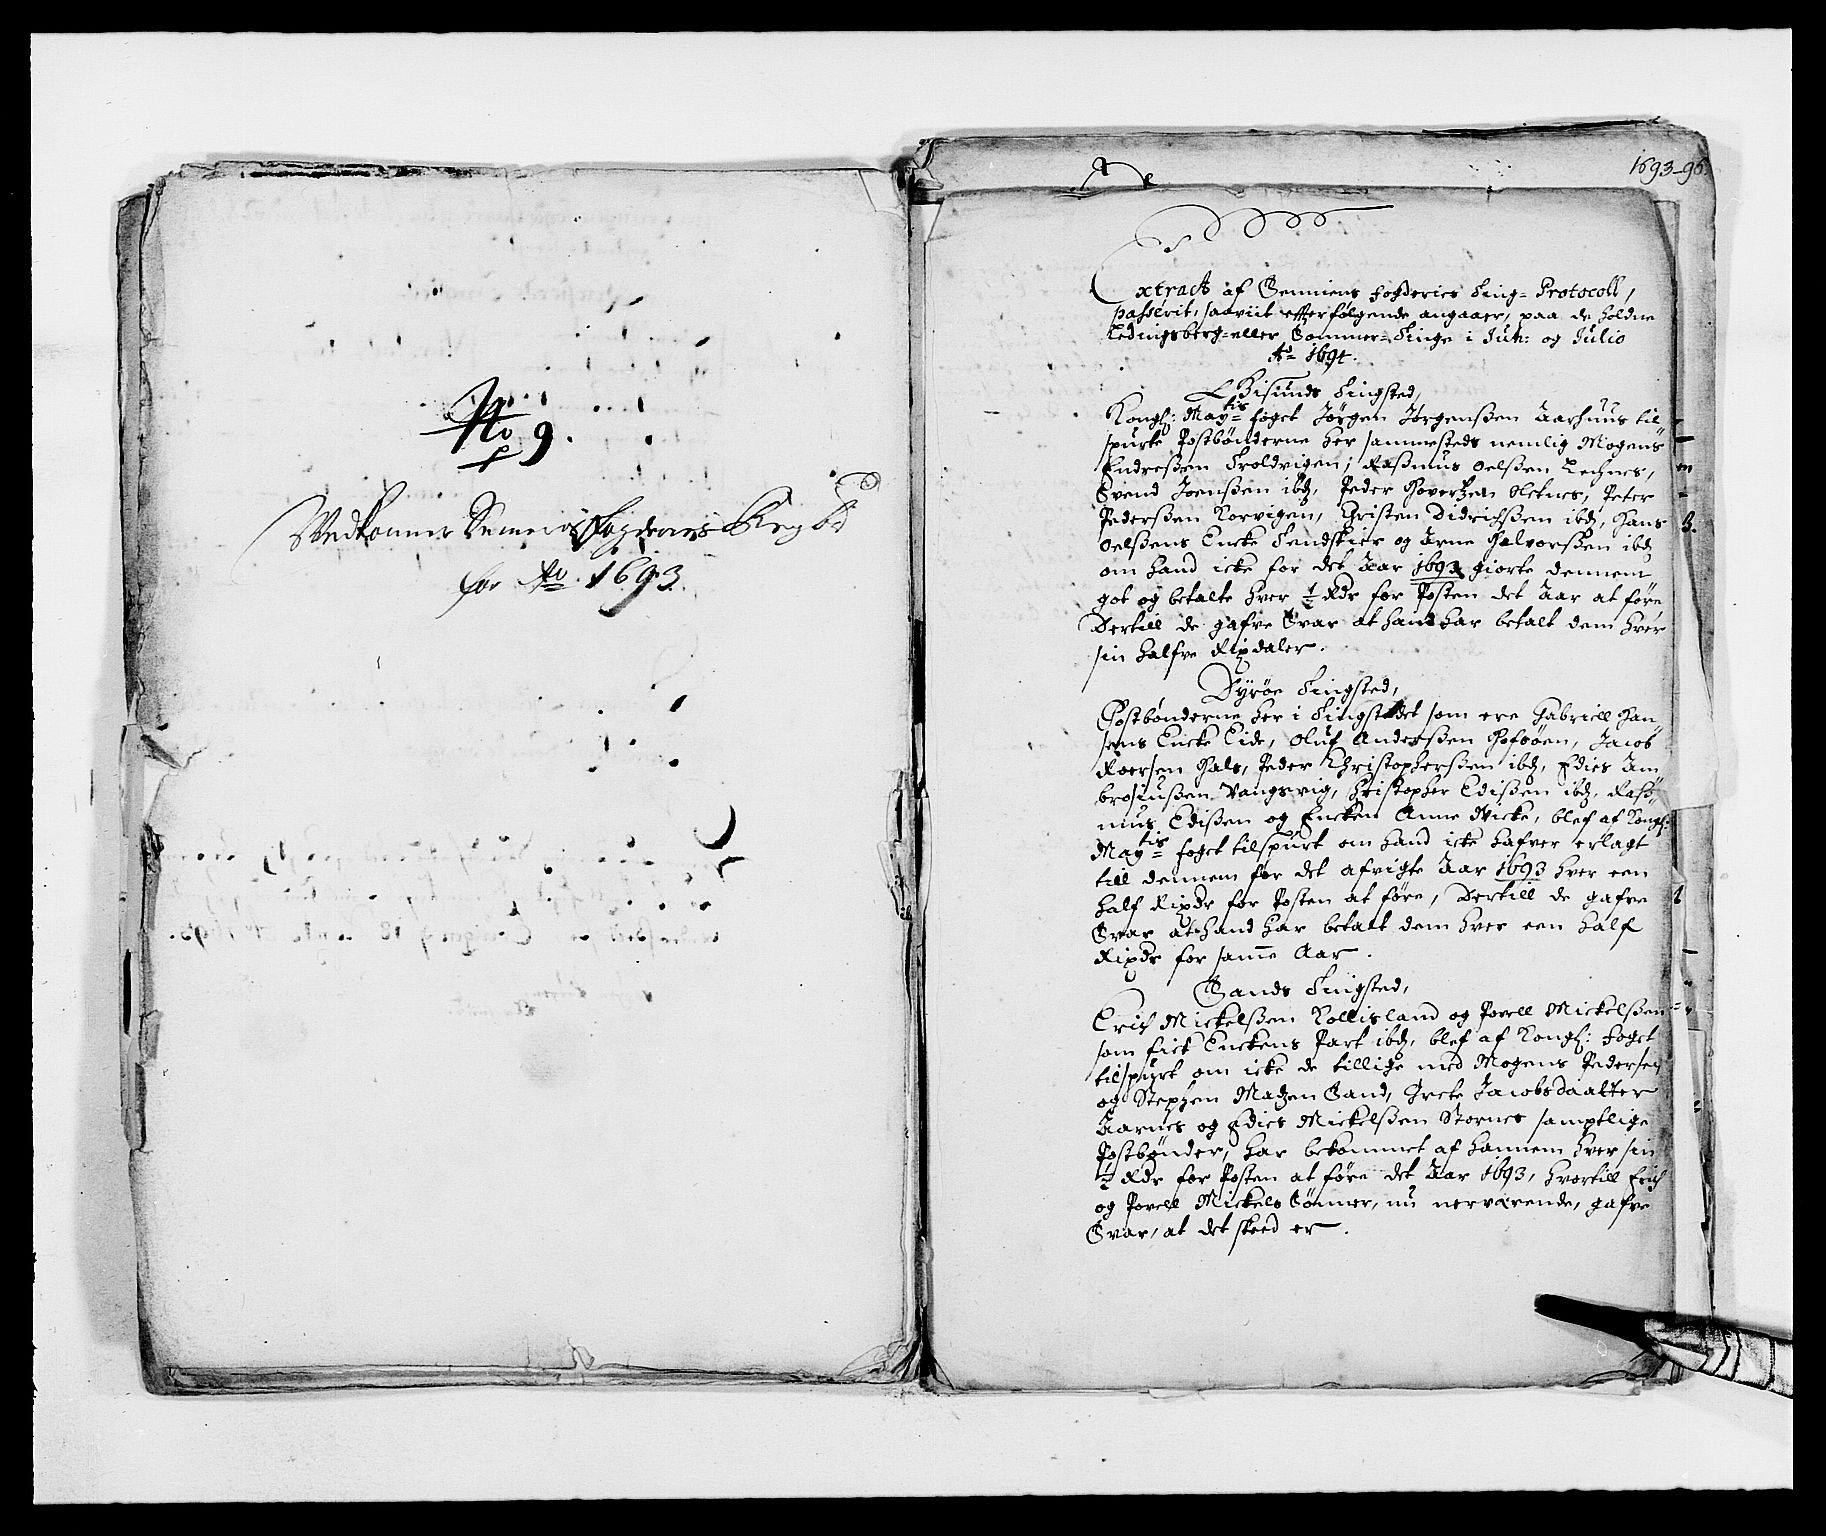 No 9.
Vedkommer Senniens Fogderies Regsk
for Ao. 1693.
1693-96
Extract af Senniens Fogderies Ting-Protocoll,
passerit, saaviit efterfølgende angaaer, paa de holdne
Ledingsberg- eller Sommer-Tinge i Jun: og Julio
Ao 1694.
Gisunds Tingsted,
Kongl: Maytis foget Jørgen Jørgenssen Aarhuus til
spurte Postbønderne her sammesteds nemlig Mogens
Endressen Troldvigen, Rasmus Oelssen Lechnes,
Svend Joenssen ibd, Peder Govertzen Oltnes, Peter
Pederssen Korvigen, Christen Didrichssen ibd, Hans
Oelssens Encke Tendskier og Arne Halvorssen ibd
om hand icke for det Aar 1693 giorte dennem
got og betalte hver ½ Rdr for Posten det Aar at føre
Dertill de gafve Svar at hand har betalt dem hver
sin halfve Rixdaler.
Dyrøe Tingsted,
Postbønderne her i Tingstedet som ere Gabriell Han
sens Encke Eide, Oluf Anderssen Hofsøen, Jacob
Roersen Hals, Peder Christopherssen ibd, Edies Am
brosiussen Vangsvig, Christopher Edissen ibd, Rass
mus Edissen og Encken Anne Vicke, blef af Kongl:
Maytis foget tilspurt om hand icke hafver erlagt
till dennem for det afvigte Aar 1693 hver een
half Rixdr for Posten at føre, Dertill de gafve
Svar at hand har betalt dem hver een half
Rixdr for samme Aar.
Sands Tingsted,
Erich Mickelssen Kollisland og Povell Mickelssen
som fick Enckens Part ibd, blef af Kongl: Foget
tilspurt om icke de tillige med Mogens Pedersen
og Stephen Matzen Sand, Grete Jacobsdaatter
Aarnes og Edies Mickelssen Stornes samptlige
Postbønder, har bekommet af hannem hver sin
½ Rdr for Posten at føre det Aar 1693, hvortill Erich
og Povell Mickels Sønner, nu nerværende, gafve
Svar, at det skeed er.